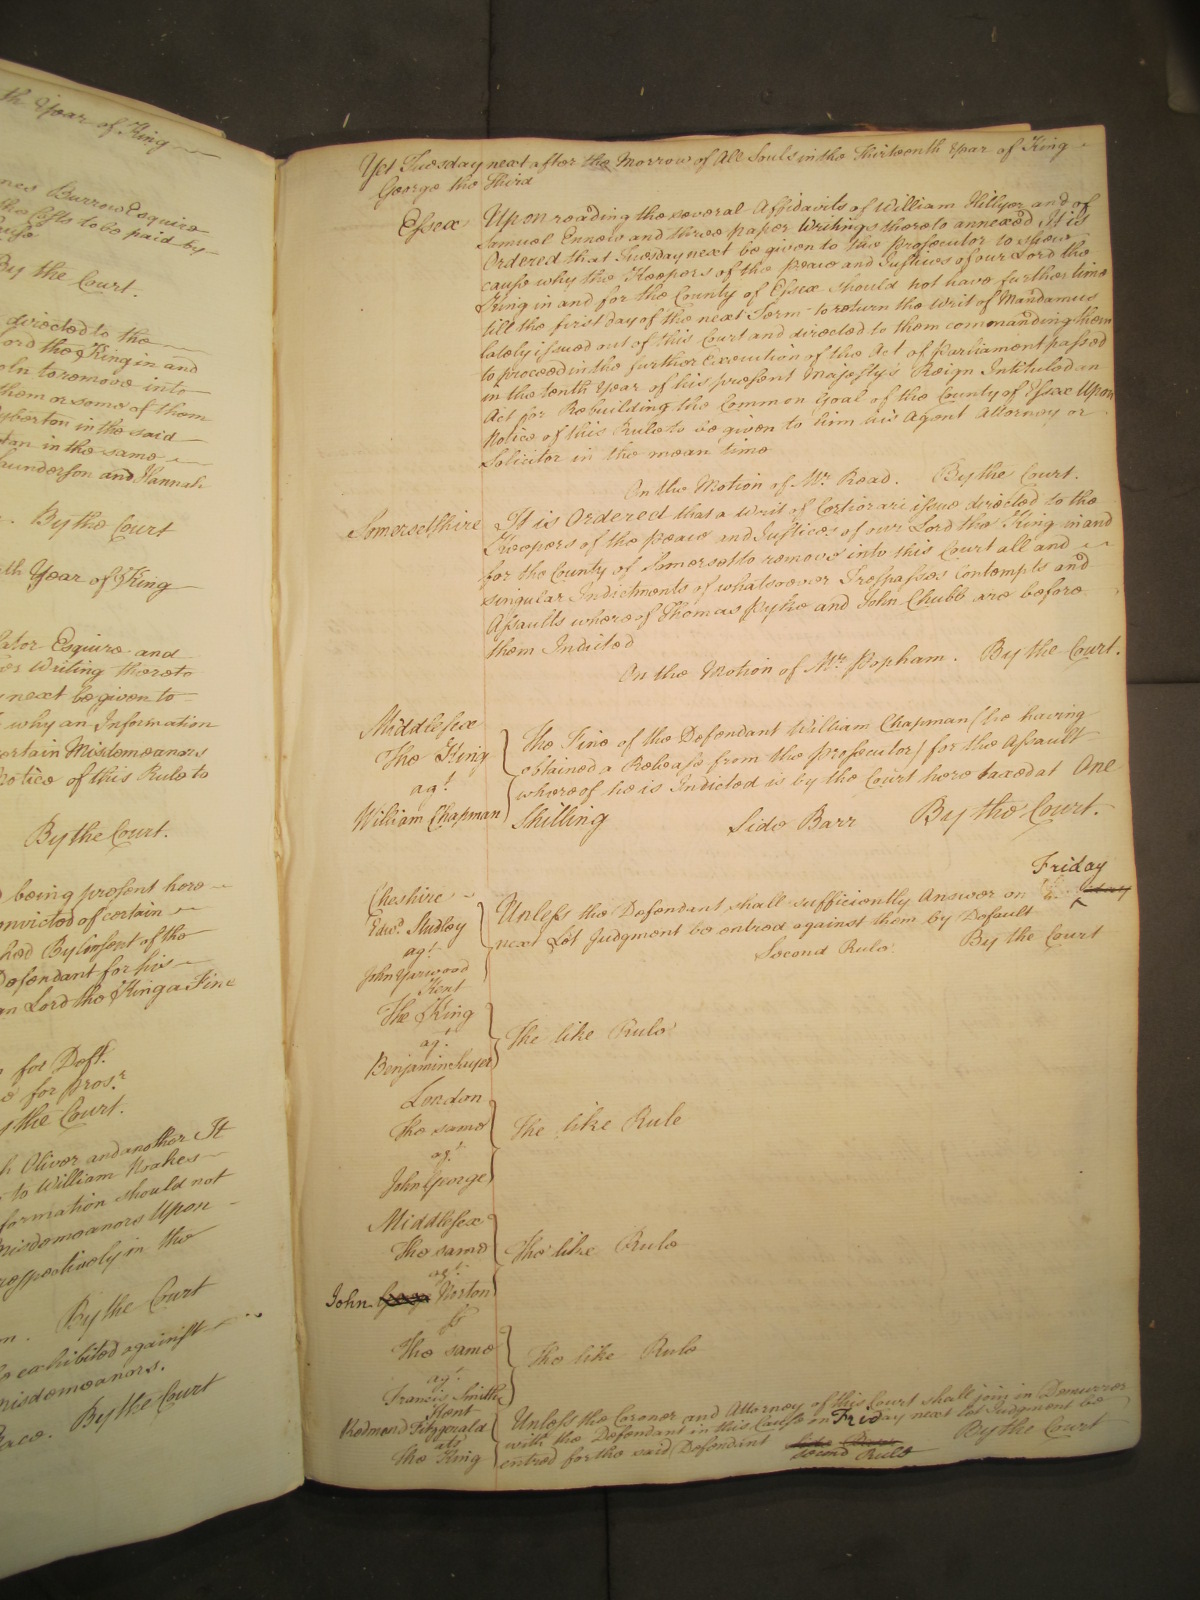 th Year of King
nes Burrow Esquire
the Costs to be paid by
Cause
By the Court.
directed to the
Lord the King in and
oln to remove into
them or some of them
yberton in the said
tan in the same
Saunderson and Hannah
By the Court
th Year of King
lator Esquire and
per Writing thereto
next be given to
why an Information
certain Misdemeanors
Notice of this Rule to
By the Court.
being present here
onvicted of certain
had By Consent of the
Defendant for his
an Lord the King a Fine
for Deft.
for Prosr
By the Court.
h Oliver and another It
to William Noakes
formation should not
Misdemeanors Upon
respectively in the
By the Court
exhibited against
misdemeanors.
By the Court
Yet Tuesday next after the Morrow of All Souls in the Thirteenth Year of King
George the Third
Essex Upon reading the several Affidavits of William Hillyer and of
Samuel Ennew and three paper Writings thereto annexed It is
Ordered that Tuesday next be given to the Prosecutor to shew
cause why the Keepers of the Peace and Justices of our Lord the
King in and for the County of Essex should not have further time
till the first day of the next Term to return the Writ of Mandamus
lately issued out of this Court and directed to them commanding them
to proceed in the further Execution of the Act of Parliament passed
in the tenth Year of his present Majesty's Reign Intituled an
Act for Rebuilding the Common Goal of the County of Essex Upon
Notice of this Rule to be given to him his Agent Attorney or
Solicitor in the mean time
On the Motion of Mr. Read. By the Court.
Somersetshire It is Ordered that a Writ of Certiorari issue directed to the
Keepers of the Peace and Justices of our Lord the King in and
for the County of Somerset to remove into this Court all and
singular Indictments of whatsoever Trespasses Contempts and
Assaults whereof Thomas Pythe and John Chubb are before
them Indicted
On the Motion of Mr. Popham. By the Court.
Middlesex
The King
agt.
William Chapman
The Fine of the Defendant William Chapman (he having
obtained a Release from the Prosecutor) for the Assault
whereof he is Indicted is by the Court here taxed at One
Shilling Side Barr By the Court.
Cheshire
Edwd. Studley
agt.
John Yarwood
Friday
Unless the Defendant shall sufficiently Answer on
next Let Judgment be entred against them by Default
Second Rule. By the Court
Kent
The King
agt.
Benjamin
The like Rule
London
The same
agt.
John George
The like Rule
Middlesex
The same
agt.
John Norton
The like Rule
The same
agt.
Francis Smith
The like Rule
Kent
Redmond Fitzgerald
ats
The King
Unless the Coroner and Attorney of this Court shall join in Demurrer
with the Defendant in this Cause on Friday next let Judgment be
entred for the said Defendant Side Barr By the Court
Second Rule